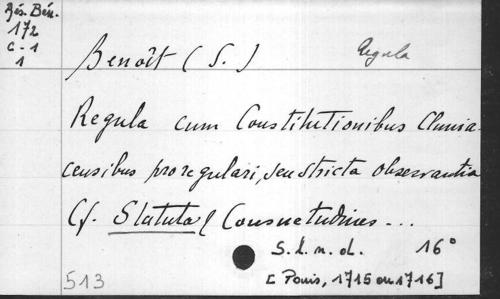 Rés. Bén.
172
C-1
1
Benoît (S.)
Regula
Regula cum Constitutionibus Clunia-
censibus pro regulari, seu stricta observantia
Cf. Statuta & Consuetudines...
S.l.n.d. 16°
[Paris, 1715 ou 1716]
513